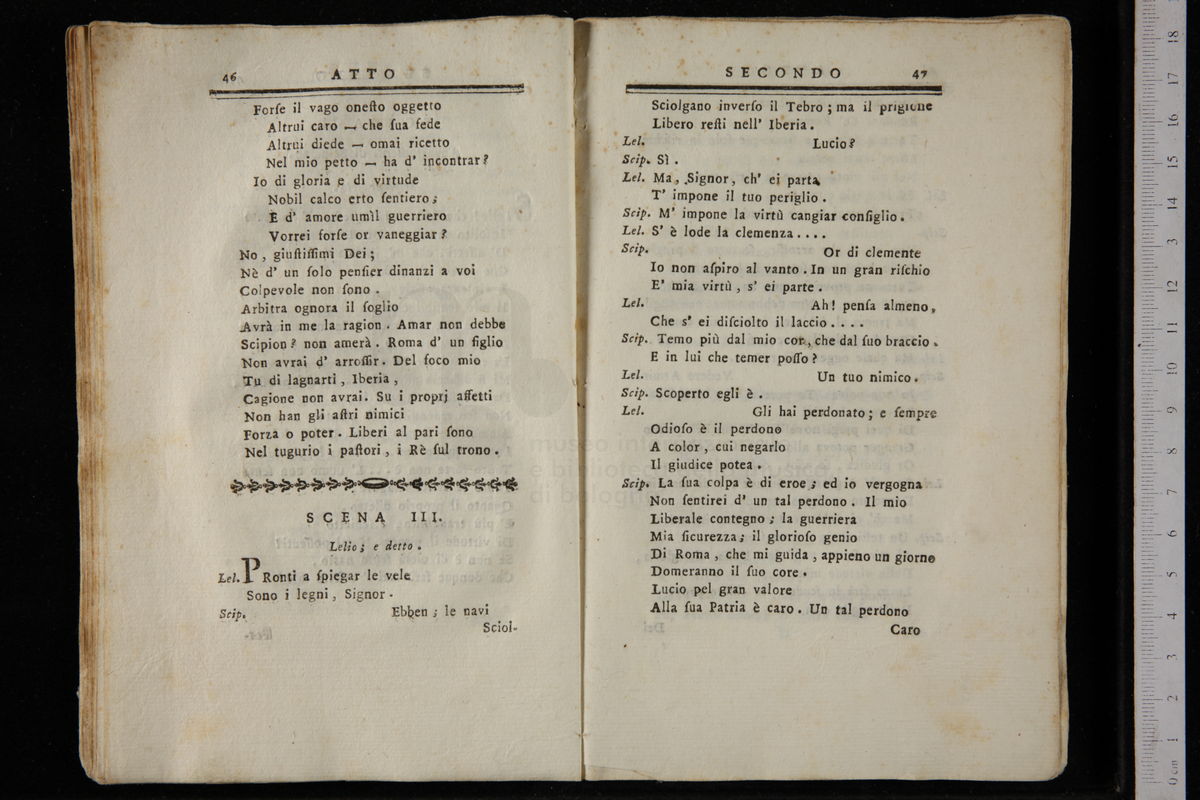 46 ATTO
Forſe il vago oneſto oggetto
Altrui caro — che ſua fede
Altrui diede — omai ricetto
Nel mio petto — ha d' incontrar?
Io di gloria e di virtude
Nobil calco erto ſentiero;
E d' amore umìl guerriero
Vorrei forſe or vaneggiar?
No, giuſtiſſimi Dei;
Nè d' un ſolo penſier dinanzi a voi
Colpevole non ſono.
Arbitra ognora il ſoglio
Avrà in me la ragion. Amar non debbe
Scipion? non amerà. Roma d' un figlio
Non avrai d' arroſſir. Del foco mio
Tu di lagnarti, Iberia,
Cagione non avrai. Su i proprj affetti
Non han gli aſtri nimici
Forza o poter. Liberi al pari ſono
Nel tugurio i paſtori, i Rè ſul trono.
SCENA III.
Lelio; e detto.
Lel. PRonti a ſpiegar le vele
Sono i legni, Signor.
Scip. Ebben; le navi
Sciol-
SECONDO 47
Sciolgano inverſo il Tebro; ma il prigione
Libero reſti nell' Iberia.
Lel. Lucio?
Scip. Sì.
Lel. Ma, Signor, ch' ei parta
T' impone il tuo periglio.
Scip. M' impone la virtù cangiar conſiglio.
Lel. S' è lode la clemenza....
Scip. Or di clemente
Io non aſpiro al vanto. In un gran riſchio
E' mia virtù, s' ei parte.
Lel. Ah! penſa almeno,
Che s' ei diſciolto il laccio....
Scip. Temo più dal mio cor, che dal ſuo braccio.
E in lui che temer poſſo?
Lel. Un tuo nimico.
Scip. Scoperto egli è.
Lel. Gli hai perdonato; e ſempre
Odioſo è il perdono
A color, cui negarlo
Il giudice potea.
Scip. La ſua colpa è di eroe; ed io vergogna
Non ſentirei d' un tal perdono. Il mio
Liberale contegno; la guerriera
Mia ſicurezza; il glorioſo genio
Di Roma, che mi guida, appieno un giorno
Domeranno il ſuo core.
Lucio pel gran valore
Alla ſua Patria è caro. Un tal perdono
Caro